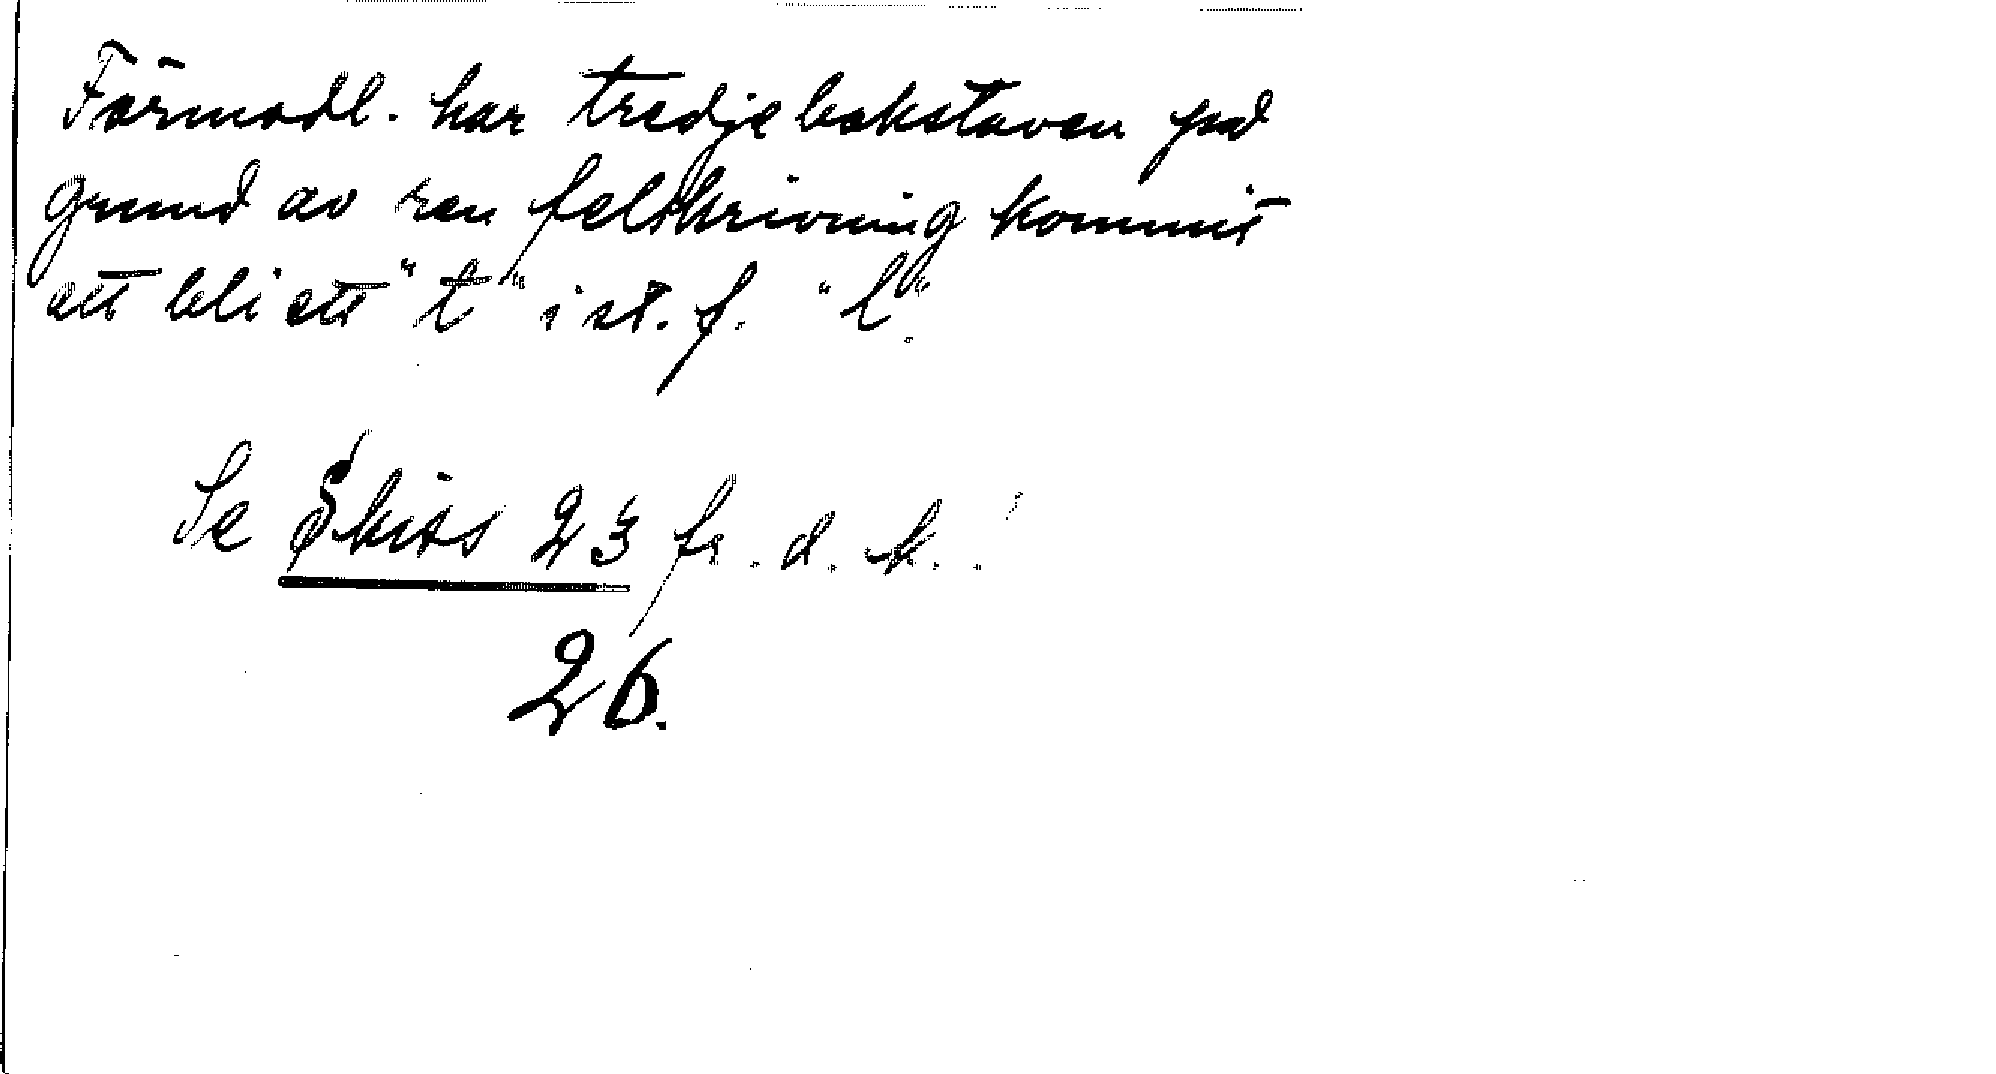 Förmodl. har tredje bokstaven på
grund av ren felskrivning kommit
att bli ett "t" i st. f. "l".
Se Skiss 23 fr. d. k.!
26.